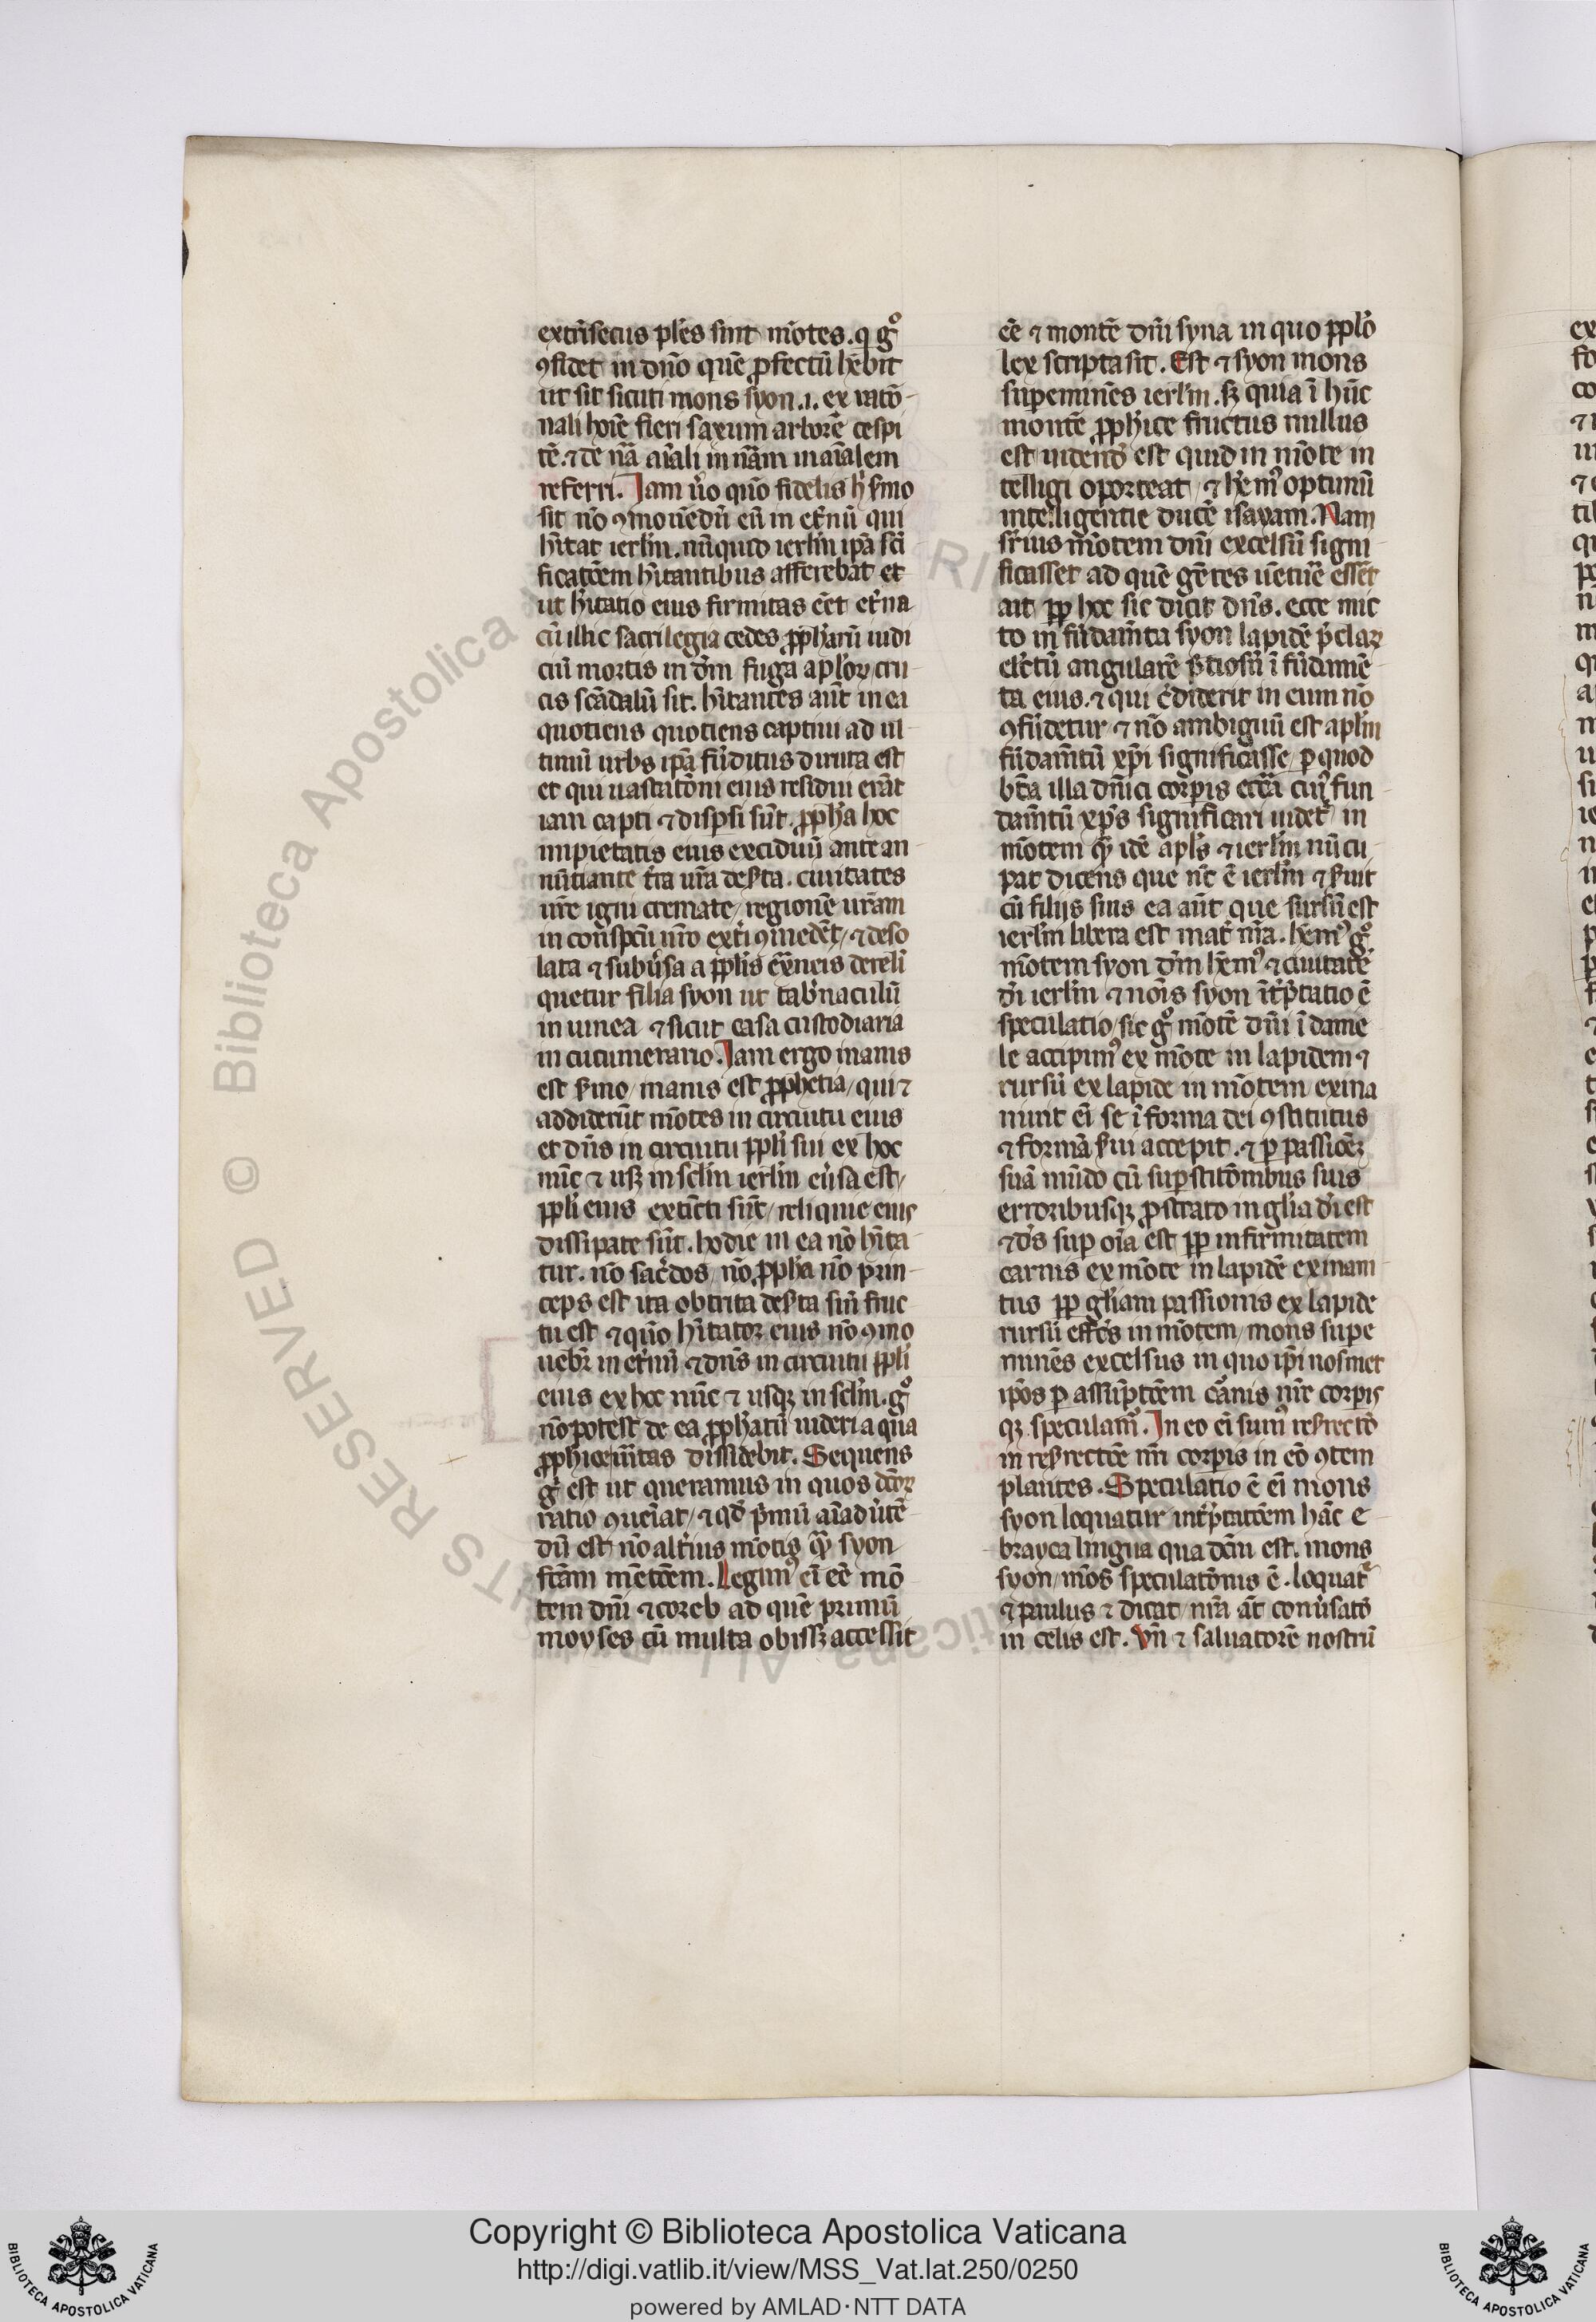 extri͛secus ples sunt mōtes. q gº
ꝯfidet in dño quē ꝓfectū hēbit
ut sit sicuti mons syon .i. ex ratō
nali hoīe fieri saxum arborē cespi
tē. ⁊ de nā aīali in nām inaīalem
referri. Iam u̓o quō fidelis h̓ s̓mo
sit nō ꝯmouēdū eū in et̓nū qui
hītat ierlm̄. nūquid ierlm̄ ipā scī
ficatōem hītantibus afferebat et
ut hītatio eius firmitas eēt et̓na
cū illic sacrilegia cedes ꝓph̓arū iudi
ciū mortis in dm̄ fuga aplōꝝ cru
cis scādalū sit. hītantes aūt in ea
quotiens quotiens captiui ad ul
timū urbs ipā fūditus diruta est
et qui uastatōni eius residui erāt
iam capti ⁊ dispsi sūt. ꝓph̓a hoc
impietatis eius excidiuū ante an
nūtiante t̓ra ur̄a des̓ta. ciuitates
ur̄e igni cremate / regionē urā̄m
in conspcū ur̄o ext̓i ꝯmedēt / ⁊ deso
lata ⁊ subu̓sa a ppl̓is ex̄neis dereli
quetur filia syon ut tab̓naculū
in uinea ⁊ sicut casa custodiaria
in cucumerario. Iam ergo inanis
est s̓mo / inanis est ꝓphetia / qui ⁊
addiderūt mōtes in circuitu eius
et dn̄s in circuitu ppl̓i sui ex hoc
nūc ⁊ usꝫ in sclm̄ ierlm̄ eu̓sa est /
ppl̓i eius extīcti sūt / reliquie eius
dissipate sūt. hodie in ea nō hīta
tur. nō sac̓dos / nō ꝓph̓a nō prin
ceps est ita obtrita des̓ta sin̄ fruc
tu est ⁊ quō hītator eius nō ꝯmo
uebit̓ in et̓nū ⁊ dn̄s in circuitu ppl̓i
eius ex hoc nūc ⁊ usqꝫ in sclm̄. gº
nō potest de ea ꝓph̓atū uideri a qua
ꝓph̓ice ūitas dissidebit. Sequens
g̓ est ut queramus in quos dc̄oꝝ
ratio ꝯueīat / ⁊ qd̓ p̓mū aīadu̓tē
dū est nō alt̓ius mōtis qꝫ̄ syon
fcām mētōem. Legimꝰ eī eē mō
tem dn̄i ⁊ coreb ad quē primū
moyses cū multa obissꝫ accessit
eē ⁊ montē dn̄i syna in quo pplō
lex scripta sit. Est ⁊ syon mons
supeminēs ierlm̄. sꝫ quia ī hūc
montē ꝓph̓ice fructus nullus
est uidend̓ est quid in mōte in
telligi oporteat / ⁊ hēmꝰ optimū
intelligentie ducē isayam. Nam
s̄rius mōtem dn̄i excelsū signi
ficasset ad quē gētes uētur̄e essēt
ait pp hoc sic dicit dn̄s. ecce mit
to in fūdam̄ta syon lapidē p̓claꝝ
elc̄tū angularē p̓tiosū ī fūdamē
ta eius. ⁊ qui c̓diderit in eum nō
ꝯfūdetur ⁊ nō ambiguū est aplm̄
fūdam̄tū xp̄i significasse / p quod
bt̄a illa dn̄ici corꝑis ecc̄a cuiꝰ fun
dam̄tū xp̄s significari uidet̓ in
mōtem qꝫ̄ idē apls̄ ⁊ ierlm̄ nūcu
pat dicens que nc̄ ē ierlm̄ ⁊ s̓uit
cū filijs suis ea aūt que sursū est
ierlm̄ libera est mat̓ nr̄a. hēmꝰ gº
mōtem syon dm̄ hēmꝰ ⁊ ciuitatē
dī ierlm̄ ⁊ nōis syon īt̓p̓tatio ē
speculatio / sic gº mōtē dn̄i ī danie
le accipimꝰ ex mōte in lapidem ⁊
rursū ex lapide in mōtem exina
niuit eī se ī forma dei ꝯstitutus
⁊ formā s̓ui accepit. ⁊ ꝑ passiōeꝫ
suā mūdo cū suꝑstitōnibus suis
erroribusqꝫ ꝓstrato in glīa dī est
⁊ ds̄ suꝑ oīa est pp infirmitatem
carnis ex mōte in lapidē exinani
tus pp glīam passionis ex lapide
rursū effc̄s in mōtem / mons supe
minēs excelsus in quo ipī nosmet
ipōs ꝑ assūptōem carnis nr̄e corꝑis
qꝫ speculamꝰ. In eo eī sumꝰ res̓rectō
in res̓rectōe nr̄i corꝑis in eō ꝯtem
plantes. Speculatio ē eī mons
syon loquatur int̓p̓tatōem hāc e
brayca lingua qua dcm̄ est. mons
syon / mōs speculatōnis ē. loquat̓
⁊ paulus ⁊ dicat / nr̄a āt conu̓satō
in celis est. Vn̄ ⁊ saluatorē nostrū
Copyright © Biblioteca Apostolica Vaticana
http://digi.vatlib.it/view/MSS_Vat.lat.250/0250
powered by AMLAD·NTT DATA
BIBLIOTECA APOSTOLICA VATICANA
BIBLIOTECA APOSTOLICA VATICANA